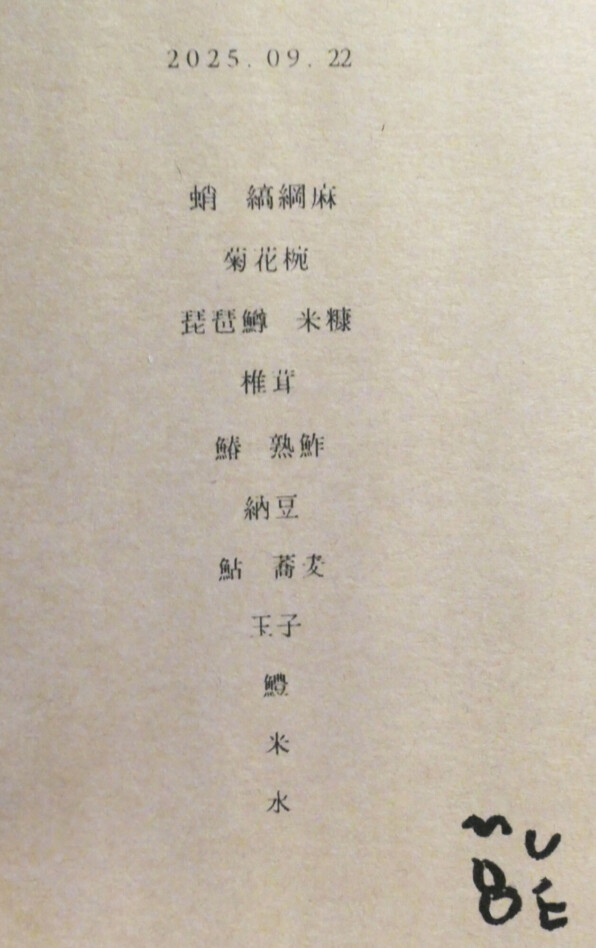 2025. 09. 22
蛸　縞綱麻
菊花椀
琵琶鱒　米糠
椎茸
鰆　熟鮓
納豆
鮎　蕎麦
玉子
鱧
米
水